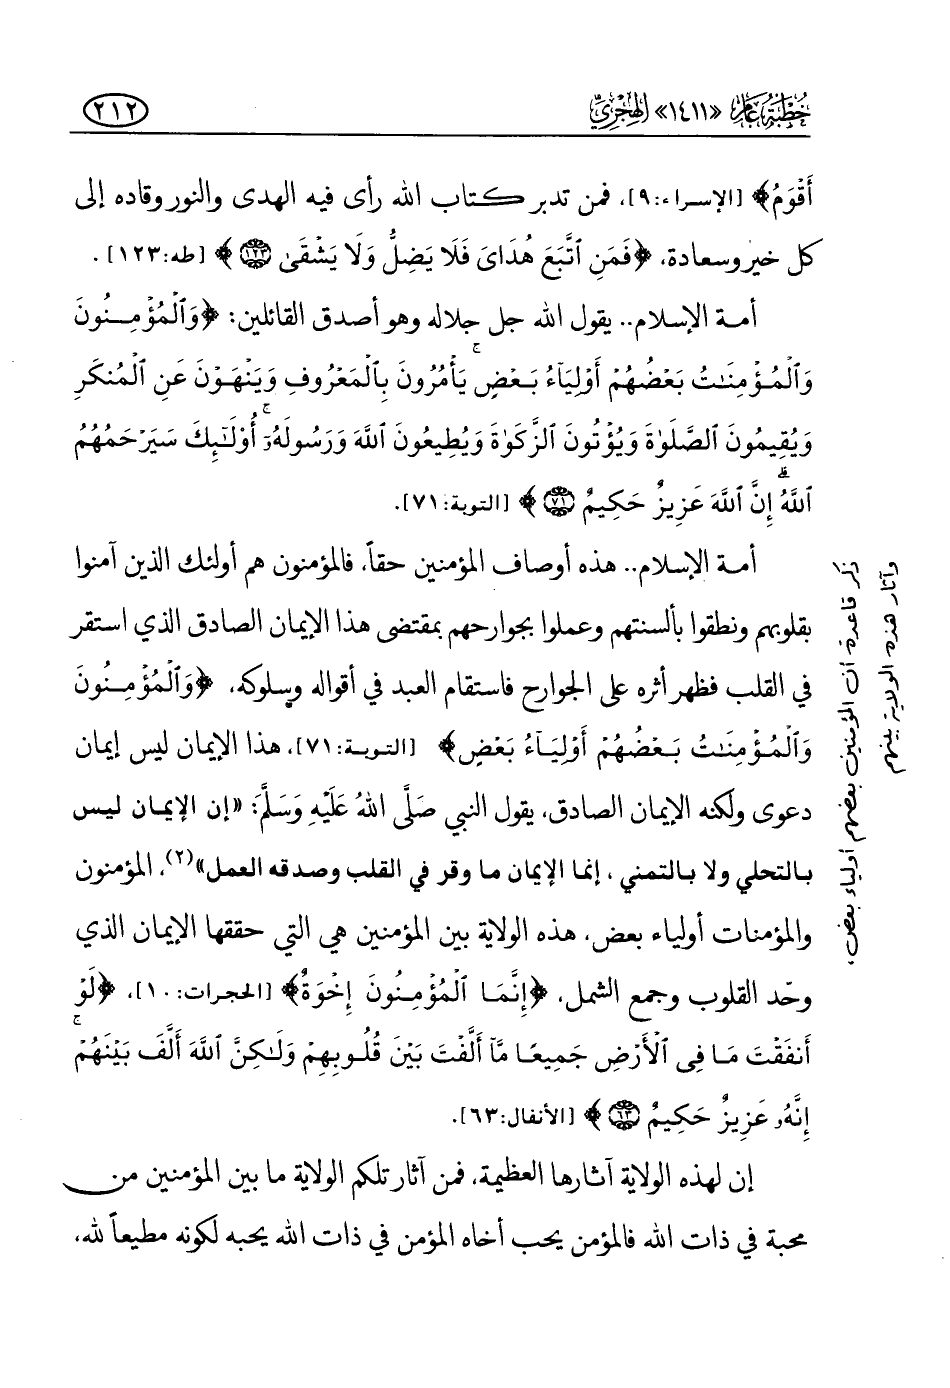 خُطْبَةُ عَام «١٤١١» الهِجْرِيّ
٢١٢
أَقْوَمُ﴾ [الإسراء:٩]، فمن تدبر كتاب الله رأى فيه الهدى والنور وقاده إلى
كل خير وسعادة، ﴿فَمَنِ ٱتَّبَعَ هُدَاىَ فَلَا يَضِلُّ وَلَا يَشْقَىٰ ١٢٣﴾ [طه:١٢٣].
أمة الإسلام.. يقول الله جل جلاله وهو أصدق القائلين: ﴿وَٱلْمُؤْمِنُونَ
وَٱلْمُؤْمِنَـٰتُ بَعْضُهُمْ أَوْلِيَآءُ بَعْضٍۚ يَأْمُرُونَ بِٱلْمَعْرُوفِ وَيَنْهَوْنَ عَنِ ٱلْمُنكَرِ
وَيُقِيمُونَ ٱلصَّلَوٰةَ وَيُؤْتُونَ ٱلزَّكَوٰةَ وَيُطِيعُونَ ٱللَّهَ وَرَسُولَهُۥٓۚ أُوْلَـٰٓئِكَ سَيَرْحَمُهُمُ
ٱللَّهُۗ إِنَّ ٱللَّهَ عَزِيزٌ حَكِيمٌ ٧١﴾ [التوبة:٧١].
أمة الإسلام.. هذه أوصاف المؤمنين حقاً، فالمؤمنون هم أولئك الذين آمنوا
بقلوبهم ونطقوا بألسنتهم وعملوا بجوارحهم بمقتضى هذا الإيمان الصادق الذي استقر
في القلب فظهر أثره على الجوارح فاستقام العبد في أقواله وسلوكه، ﴿وَٱلْمُؤْمِنُونَ
وَٱلْمُؤْمِنَـٰتُ بَعْضُهُمْ أَوْلِيَآءُ بَعْضٍ﴾ [التوبة:٧١]، هذا الإيمان ليس إيمان
دعوى ولكنه الإيمان الصادق، يقول النبي صَلَّى اللهُ عَلَيْهِ وَسَلَّمَ: «إن الإيمان ليس
بالتحلي ولا بالتمني، إنما الإيمان ما وقر في القلب وصدقه العمل»(٢)، المؤمنون
والمؤمنات أولياء بعض، هذه الولاية بين المؤمنين هي التي حققها الإيمان الذي
وحّد القلوب وجمع الشمل، ﴿إِنَّمَا ٱلْمُؤْمِنُونَ إِخْوَةٌ﴾ [الحجرات:١٠]، ﴿لَوْ
أَنفَقْتَ مَا فِى ٱلْأَرْضِ جَمِيعًا مَّآ أَلَّفْتَ بَيْنَ قُلُوبِهِمْ وَلَـٰكِنَّ ٱللَّهَ أَلَّفَ بَيْنَهُمْۚ
إِنَّهُۥ عَزِيزٌ حَكِيمٌ ٦٣﴾ [الأنفال:٦٣].
إن لهذه الولاية آثارها العظيمة، فمن آثار تلكم الولاية ما بين المؤمنين من
محبة في ذات الله فالمؤمن يحب أخاه المؤمن في ذات الله يحبه لكونه مطيعاً لله،
ذكر قاعدة أن المؤمنين بعضهم أولياء بعض،
وآثار هذه الولاية بينهم